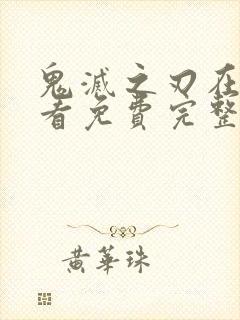 鬼滅之刃在
者免費完整
黃華珠